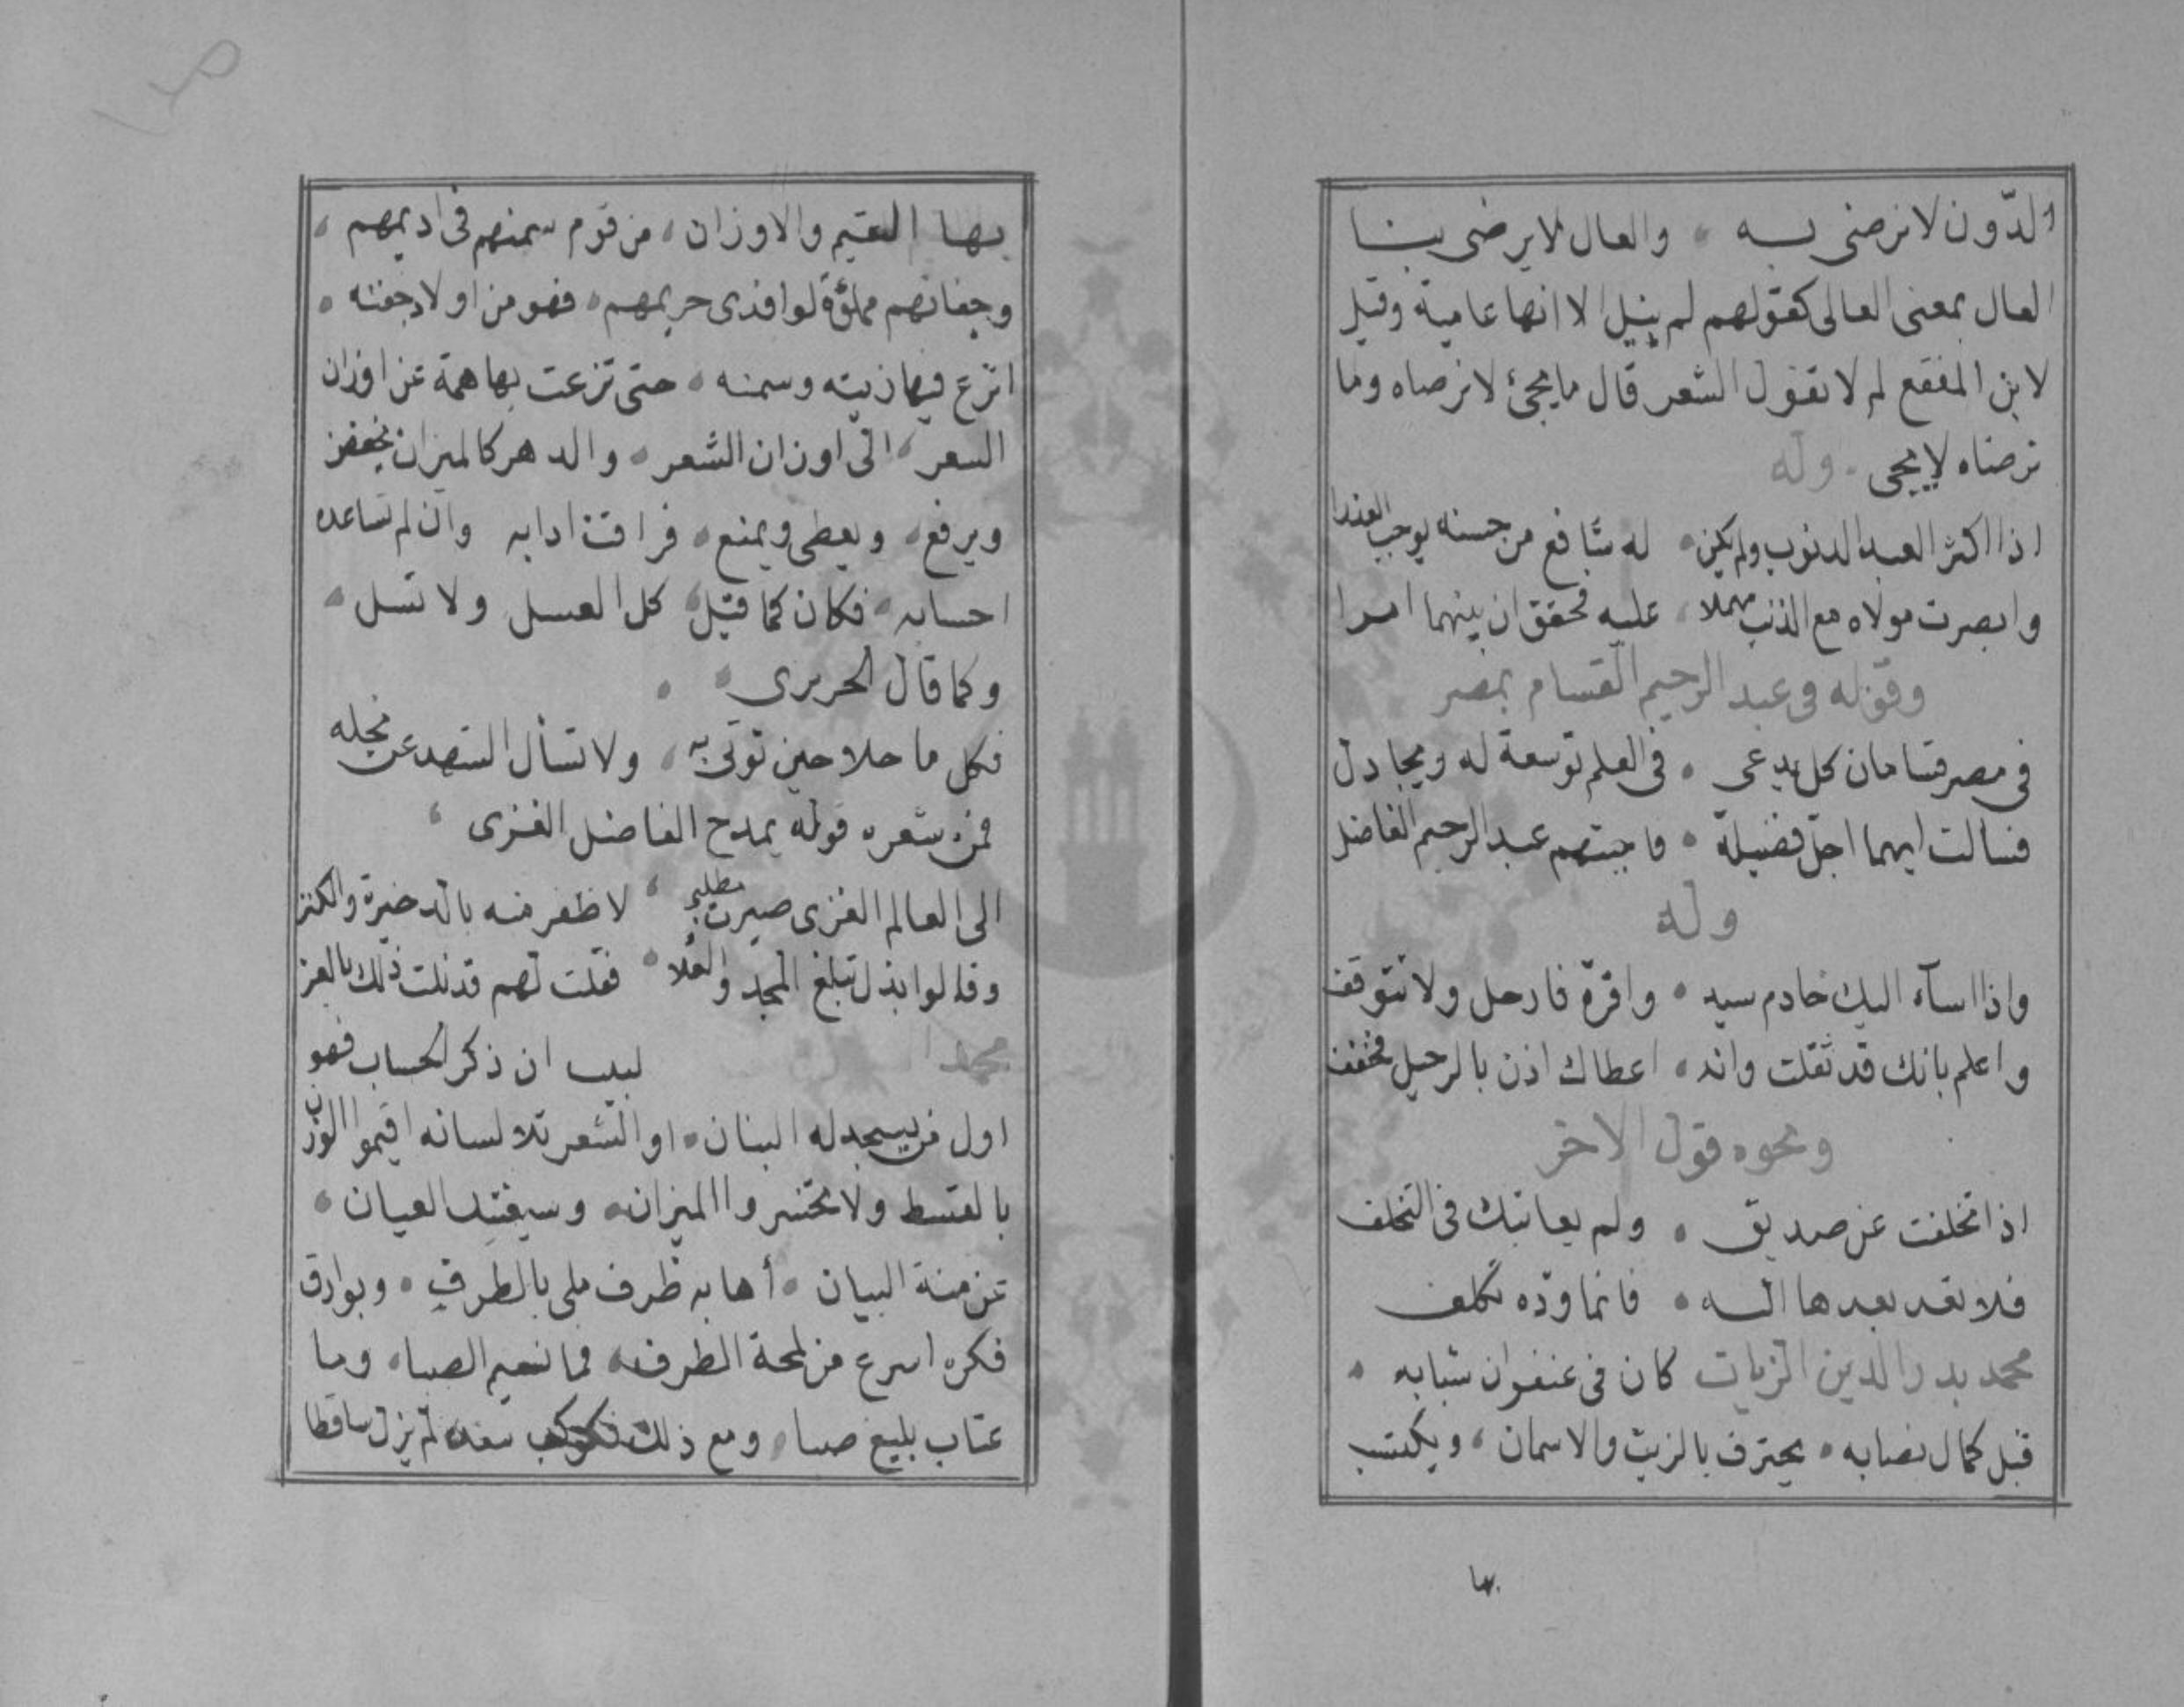 الدّون لا نرضى به والعال لا يرضى بنا
العال بمعنى العالى كقولهم لم ينيل الا انها عامية وقيل
لابن المقفع لم لا تقول الشعر قال ما يجئ لا نرضاه وما
نرضاه لا يجى وله
اذا اكثر العبد الذنوب ولم يكن له شافع من حسنه يوجب العذرا
وابصرت مولاه مع الذنب مهملا عليه فحقق ان بينهما امرا
وقوله فى عبد الرحيم القسام بمصر
فى مصر قسامان كل يدعى فى العلم توسعة له ويجادل
فسالت ايهما اجل فضيلة فاجبتهم عبد الرحيم الفاضل
وله
واذا اسآء اليك خادم سيد واقرّه فارحل ولا تتوقف
واعلم بانك قد ثقلت وانه اعطاك اذن بالرحيل فخفف
ونحوه قول الاخر
اذا تخلفت عن صديق ولم يعاتبك فى التخلف
فلا تعد بعدها اليه فانما ودّه تكلف
محمد بدر الدين الزيات كان فى عنفوان شبابه
قبل كمال نصابه يحترف بالزيت والاسمان ويكتسب
بها
بها القيم والاوزان من قوم سمنهم فى اديمهم
وجفانهم مملؤة لوافدى حريمهم فهو من اولاد جفنه
اترع فيها زيته وسمنه حتى نزعت بها همة عن اوزان
السعر الى اوزان الشعر والدهر كالميزان يخفض
ويرفع ويعطى ويمنع فراقت ادابه وان لم تساعده
احسابه فكان كما قيل كل العسل ولا تسل
وكما قال الحريرى
فكل ما حلا حين توتى به ولا تسأل الشهد عن نحله
فمن شعره قوله يمدح الفاضل الغزى
الى العالم الغزى صيرت مطلبى لا ظفر منه بالدخيرة والكنز
وقالوا بذل تبلغ المجد والعلا فقلت لهم قد نلت ذلك بالعز
محمد لبيب ان ذكر الحساب فهو
اول من يسجد له البنان او الشعر تلا لسانه اقيموا الوزن
بالقسط ولا تخسروا الميزان العيان
عن منة البيان أهابه ظرف ملى بالظرف وبوارق
فكره اسرع من لمحة الطرف فما نسيم الصبا وما
عتاب بليغ صبا ومع ذلك فكوكب سعده لم يزل ساقطا